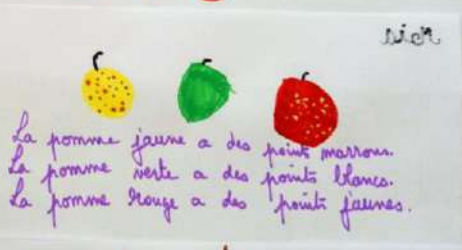 La pomme jaune a des points marrons.
La pomme verte a des points blancs.
La pomme rouge a des points jaunes.